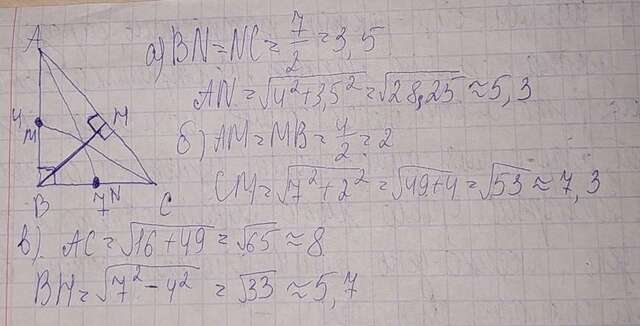 A
4
M
H
B
7
N
C
а) BN = NC = 7/2 = 3,5
AN = √4²+3,5² = √28,25 ≈ 5,3
б) AM = MB = 4/2 = 2
CM = √7²+2² = √49+4 = √53 ≈ 7,3
в). AC = √16+49 = √65 ≈ 8
BH = √7²-4² = √33 ≈ 5,7